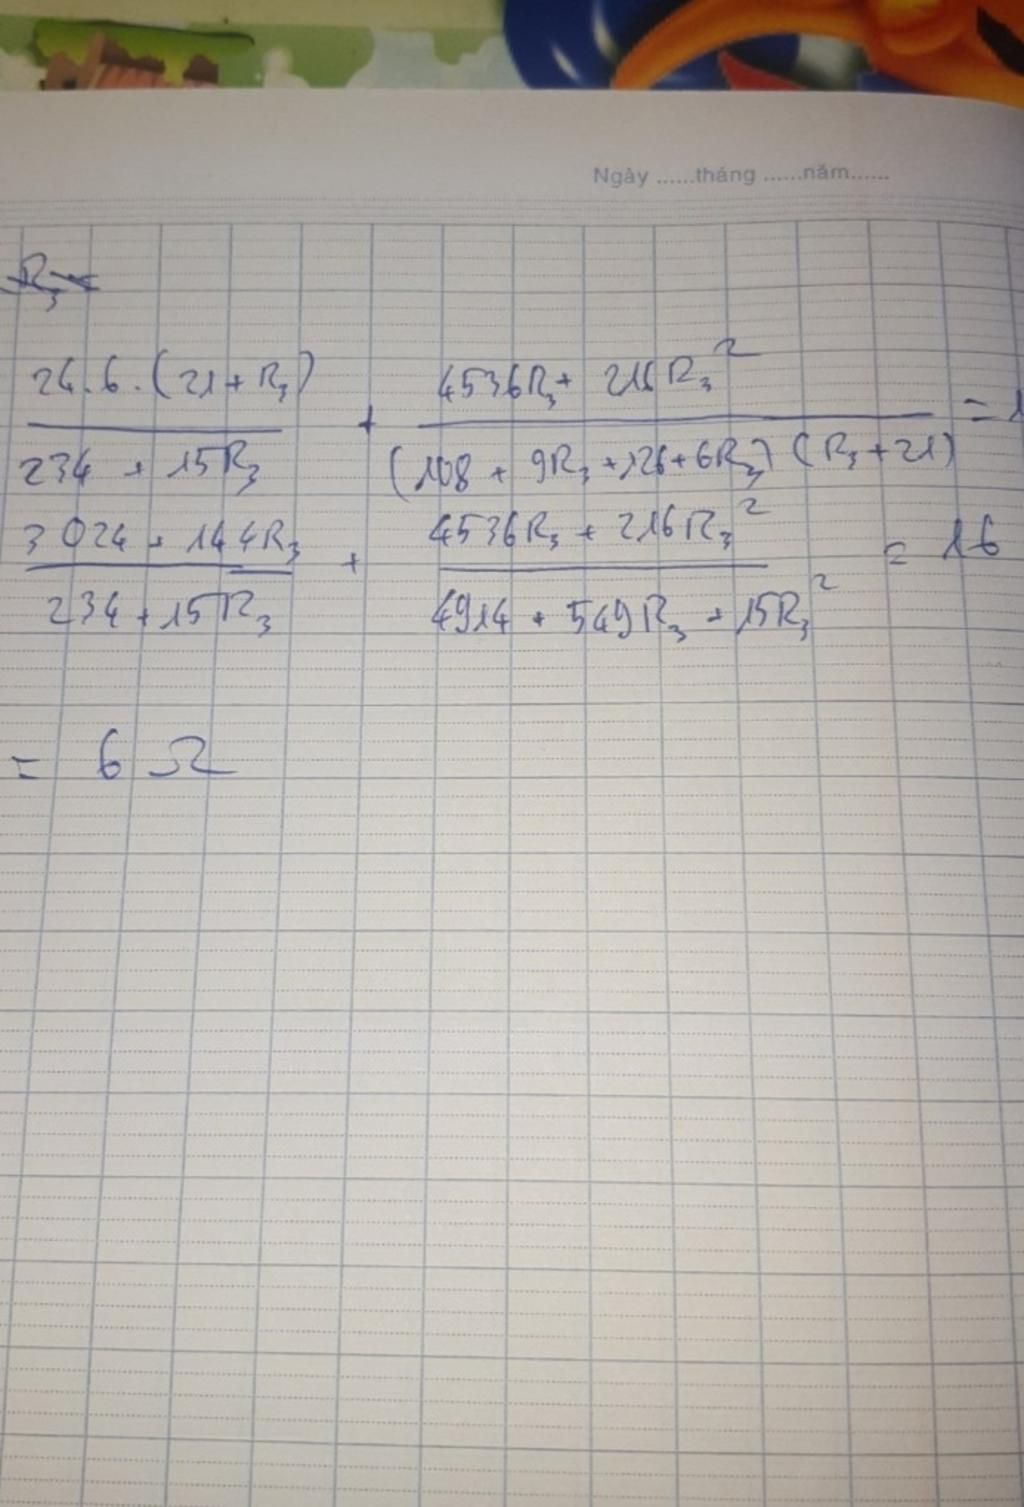 Ngày ......tháng ......năm......
R₃=
24.6.(21+R₃) / 234 + 15R₃ + 4536R₃ + 216R₃² / (108 + 9R₃ + 126 + 6R₃) (R₃ + 21) = 1
3024 + 144R₃ / 234 + 15R₃ + 4536R₃ + 216R₃² / 4914 + 549R₃ + 15R₃² = 16
= 6 Ω